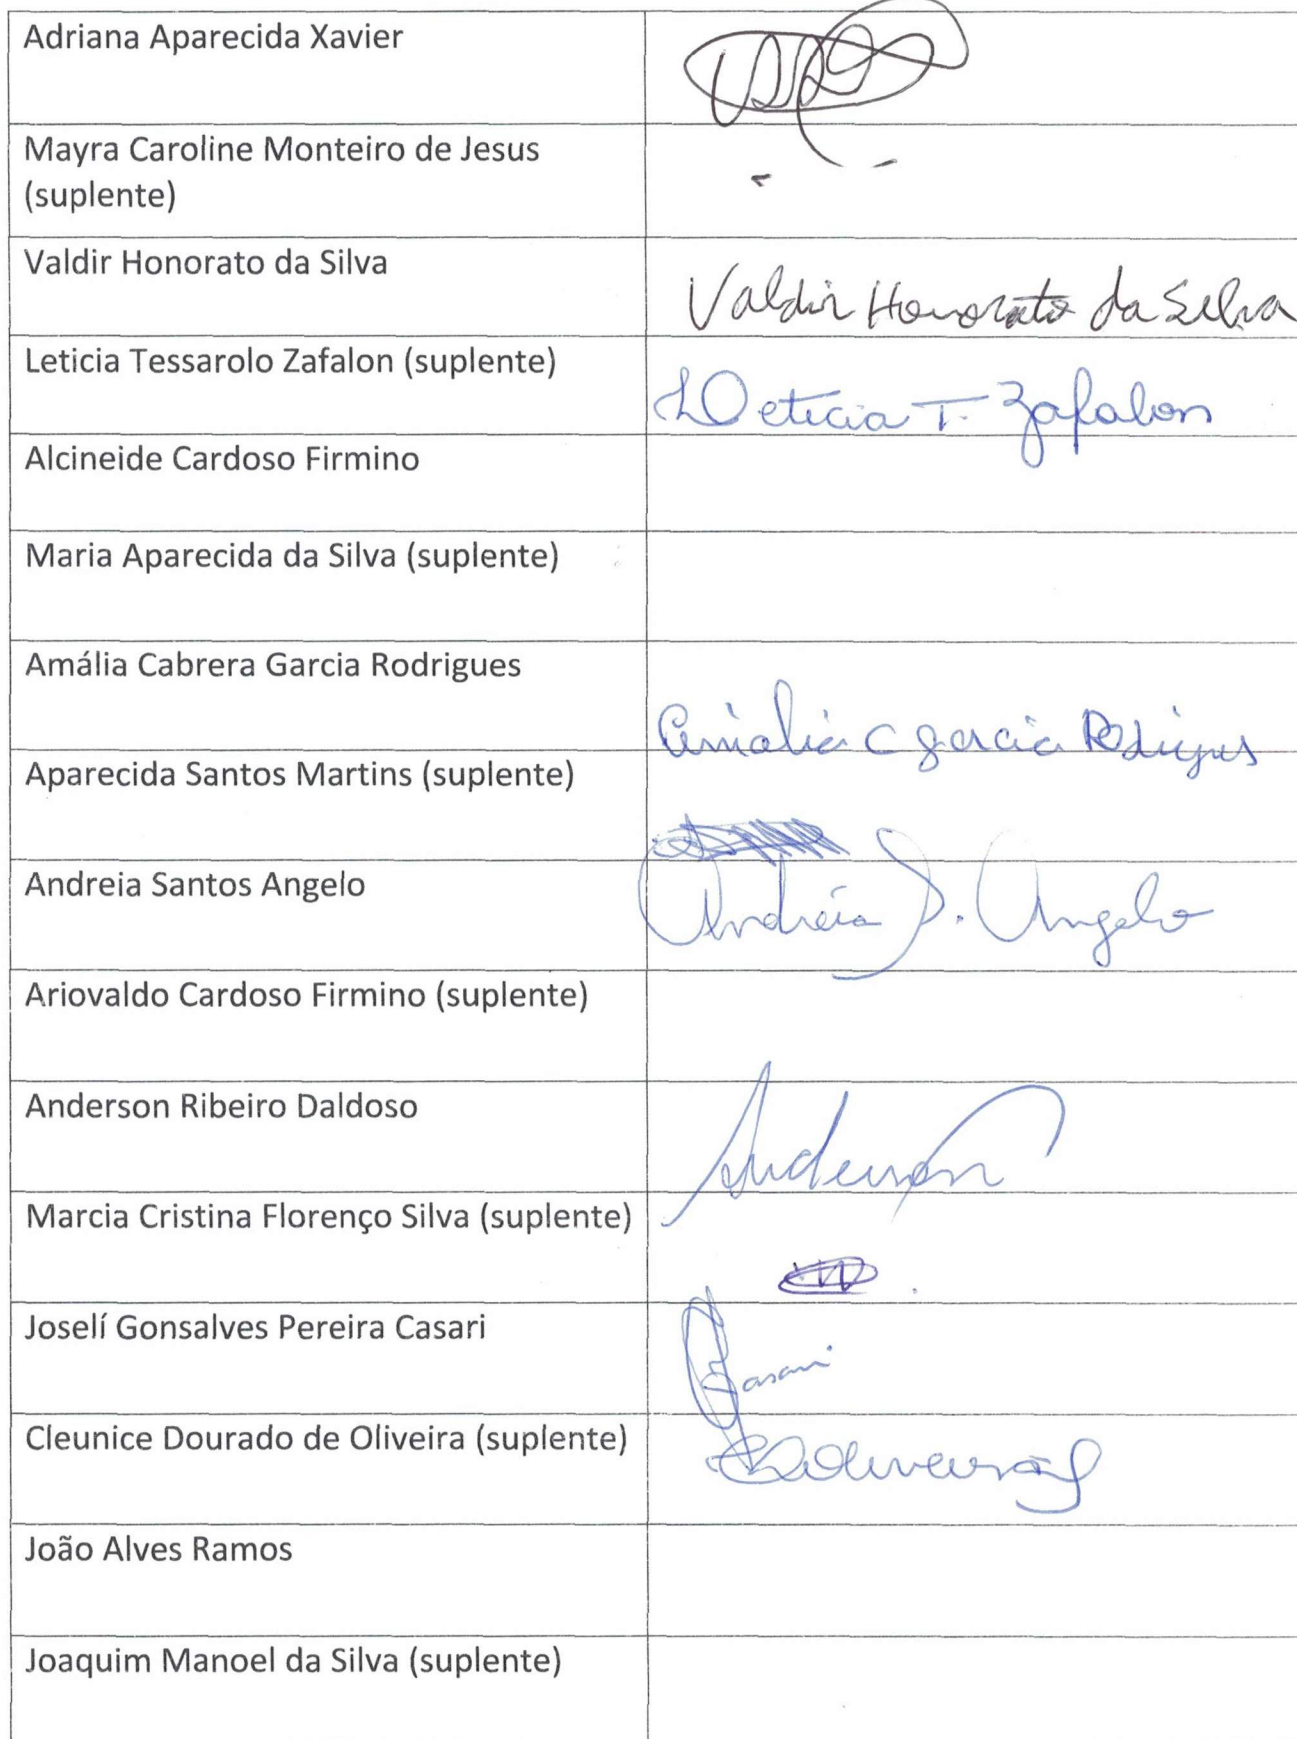 Adriana Aparecida Xavier
Mayra Caroline Monteiro de Jesus
(suplente)
Valdir Honorato da Silva
Valdir Honorato da Silva
Leticia Tessarolo Zafalon (suplente)
Leticia T. Zafalon
Alcineide Cardoso Firmino
Maria Aparecida da Silva (suplente)
Amália Cabrera Garcia Rodrigues
Amalia C Garcia Rodrigues
Aparecida Santos Martins (suplente)
Andreia Santos Angelo
Andréia S. Angelo
Ariovaldo Cardoso Firmino (suplente)
Anderson Ribeiro Daldoso
Anderson
Marcia Cristina Florenço Silva (suplente)
Joselí Gonsalves Pereira Casari
Casari
Cleunice Dourado de Oliveira (suplente)
João Alves Ramos
Joaquim Manoel da Silva (suplente)